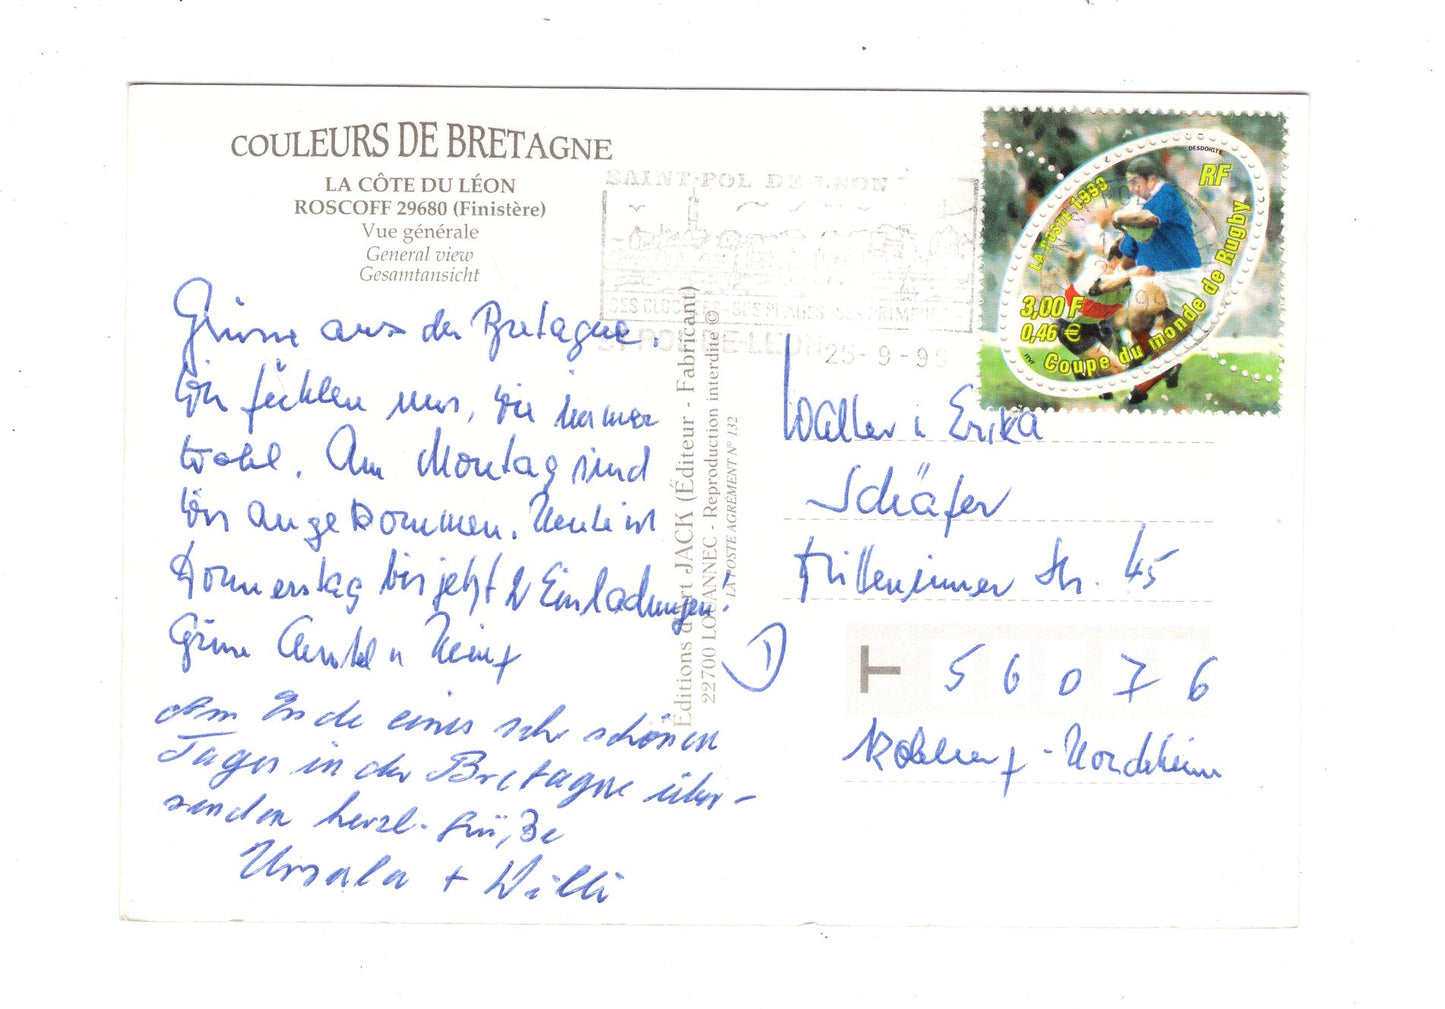 COULEURS DE BRETAGNE
LA CÔTE DU LÉON
ROSCOFF 29680 (Finistère)
Vue générale
General view
Gesamtansicht
Grüsse aus der Bretagne.
Wir fühlen uns, wie immer
wohl. Am Montag sind
wir angekommen. Heute ist
Donnerstag bis jetzt 2 Einladungen!
Grüsse u Heinz
Am Ende eines sehr schönen
Tages in der Bretagne über-
senden herzl. Grüße
Ursula + Willi
Editions d'art JACK (Éditeur - Fabricant)
22700 LOUANNEC - Reproduction interdite ©
LA POSTE AGRÉMENT N° 132
SAINT POL DE LEON
SES CLOCHERS - SES PLAGES - SES PRIMEURS
ST POL-DE-LEON 25-9-99
DESDOIGTS
RF
LA POSTE 1999
3,00 F
0,46 €
Coupe du monde de Rugby
ITVF
Walter u Erika
Schäfer
Str. 45
D
T 56076
Koblenz - Horchheim